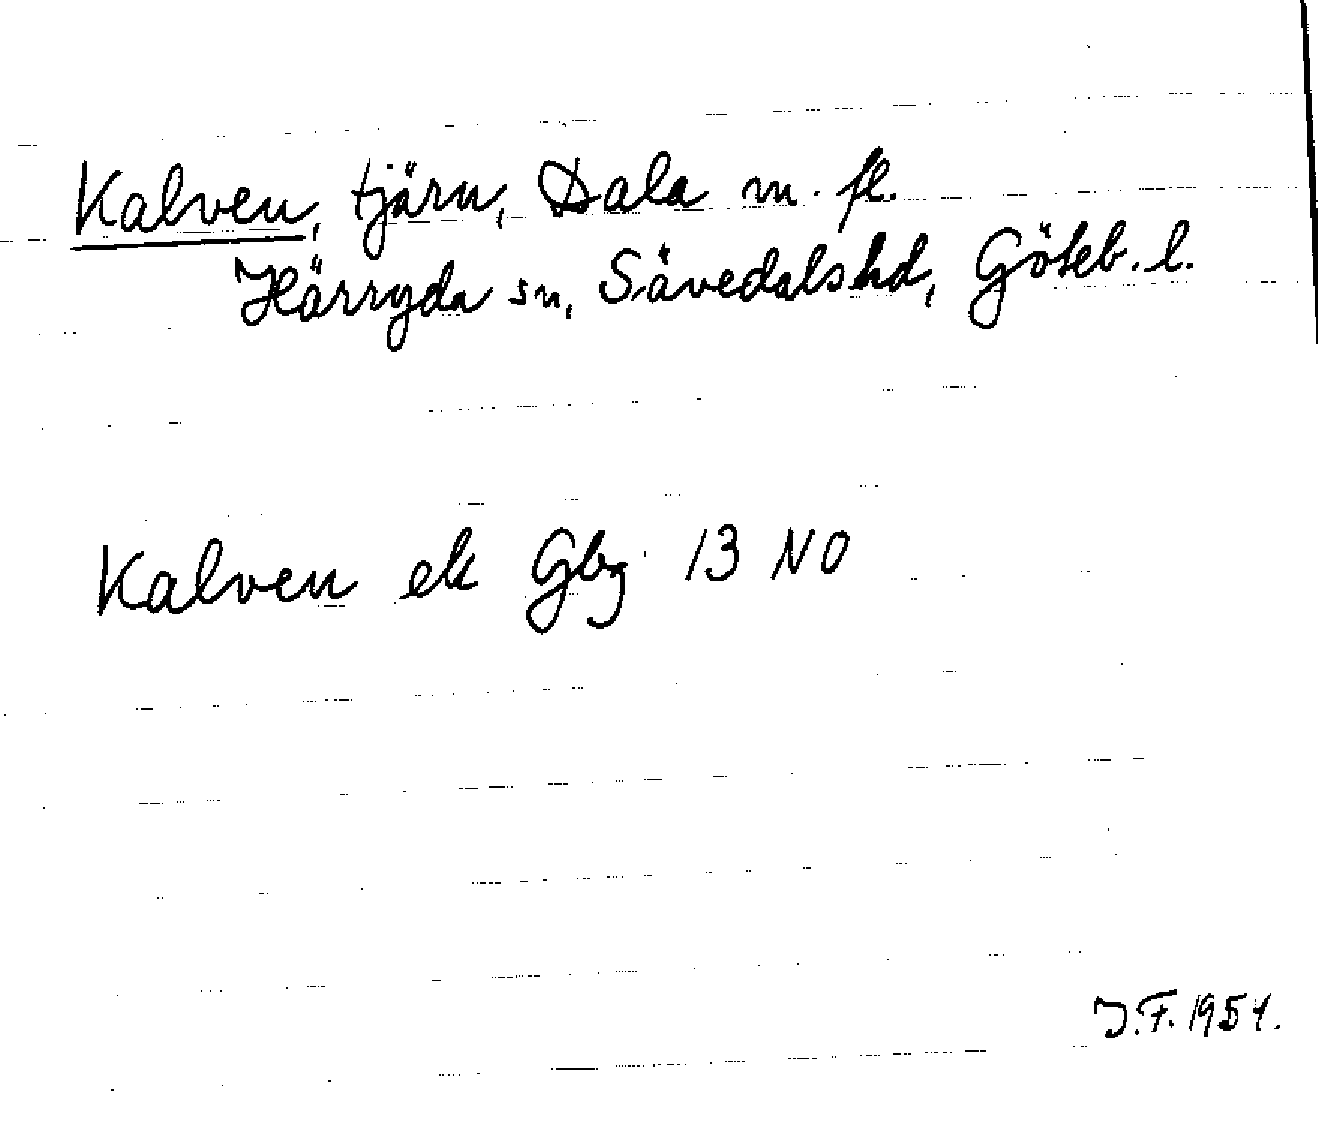 Kalven, tjärn, Dala m. fl.
Härryda sn, Sävedals hd, Göteb. l.
Kalven ek Gbg 13 NO
J.F. 1954.